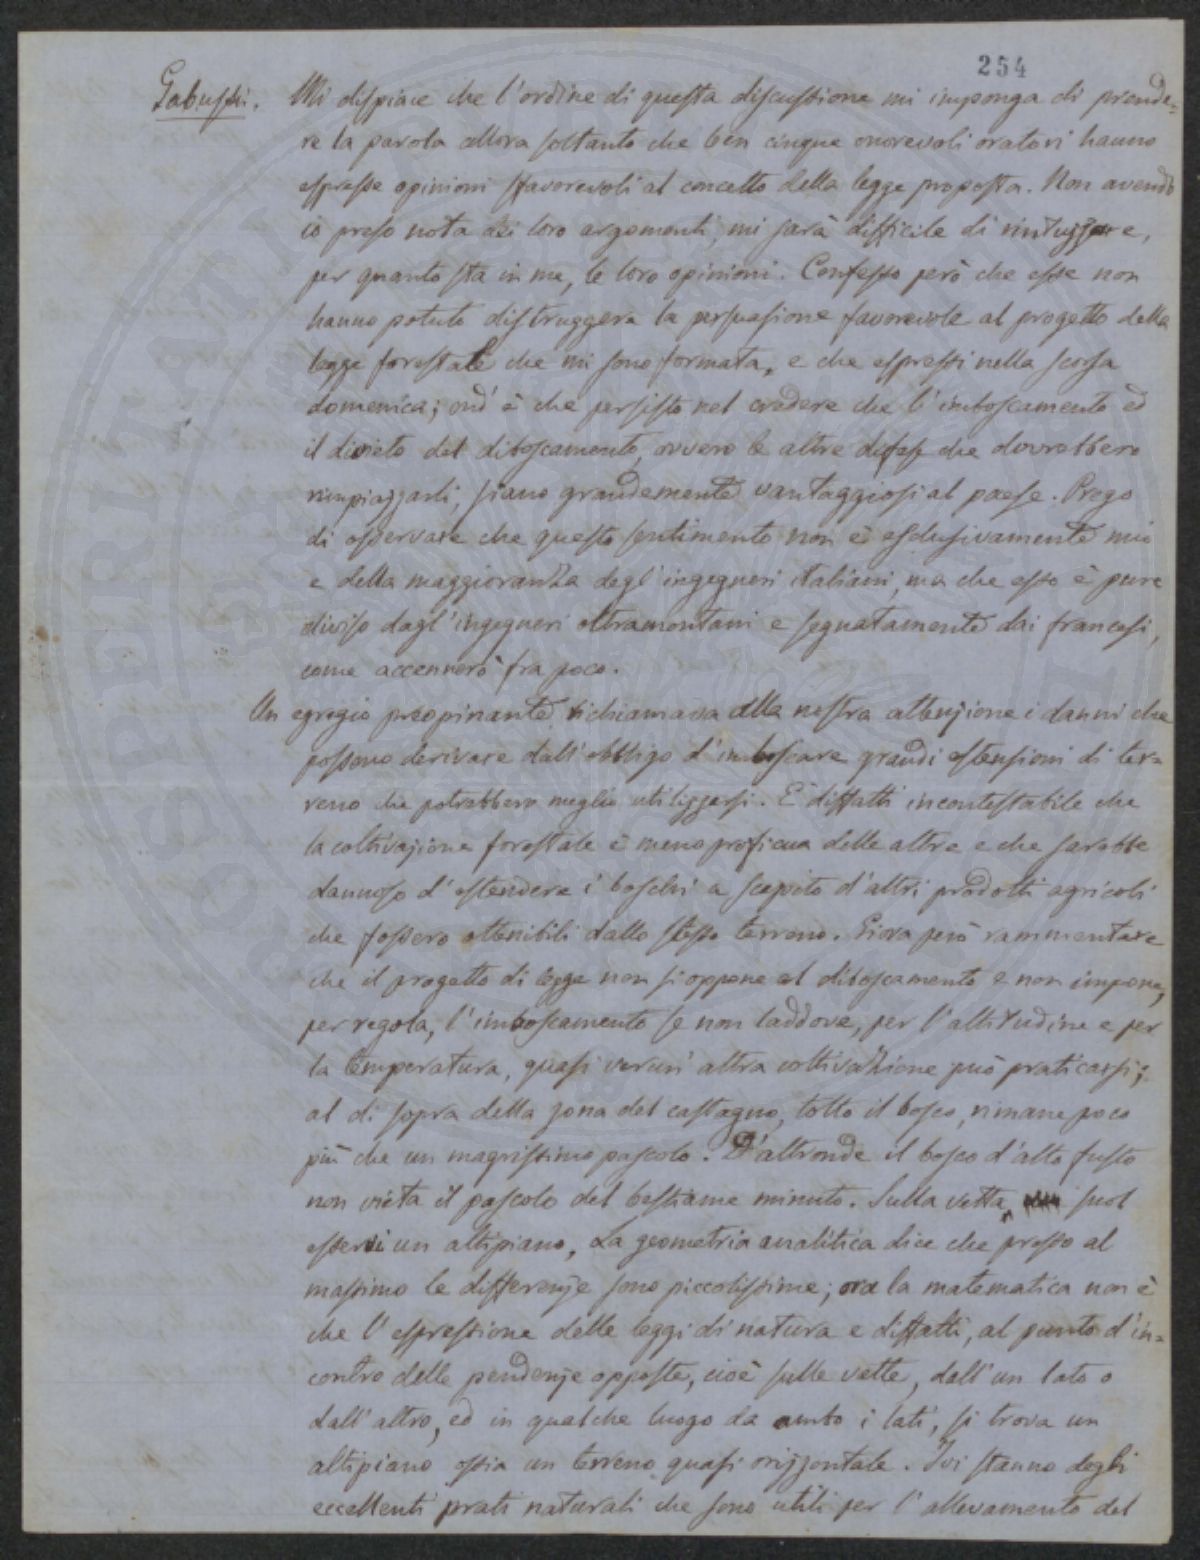 254
Gabussi. Mi dispiace che l'ordine di questa discussione mi imponga di prende=
re la parola allora soltanto che ben cinque onorevoli oratori hanno
espresse opinioni sfavorevoli al concetto della legge proposta. Non avendo
io preso nota dei loro argomenti, mi sarà difficile di rintuzzare,
per quanto sta in me, le loro opinioni. Confesso però che esse non
hanno potuto distruggere la persuasione favorevole al progetto della
legge forestale che mi sono formata, e che espressi nella scorsa
domenica; ond' è che persisto nel credere che l'imboscamento ed
il divieto del diboscamento, ovvero le altre difese che dovrebbero
rimpiazzarli, siano grandemente vantaggiosi al paese. Prego
di osservare che questo sentimento non è esclusivamente mio
e della maggioranza degl'ingegneri italiani, ma che esso è pure
diviso dagl'ingegneri oltramontani e segnatamente dai francesi,
come accennerò fra poco.
Un egregio preopinante richiamava alla nostra attenzione i danni che
possono derivare dall'obbligo d'imboscare grandi estensioni di ter=
reno che potrebbero meglio utilizzarsi. E' diffatti incontestabile che
la coltivazione forestale è meno proficua delle altre e che sarebbe
dannoso d'estendere i boschi a scapito d'altri prodotti agricoli
che fossero ottenibili dallo stesso terreno. Giova però rammentare
che il progetto di legge non si oppone al diboscamento e non impone,
per regola, l'imboscamento se non laddove, per l'altitudine e per
la temperatura, quasi verun'altra coltivazione può praticarsi;
al di sopra della zona del castagno, tolto il bosco, rimane poco
più che un magrissimo pascolo. D'altronde il bosco d'alto fusto
non vieta il pascolo del bestiame minuto. Sulla vetta suol
esservi un altipiano, La geometria analitica dice che presso al
massimo le differenze sono piccolissime; ora la matematica non è
che l'espressione delle leggi di natura e diffatti, al punto d'in=
contro delle pendenze opposte, cioè sulle vette, dall'un lato o
dall'altro, ed in qualche luogo da ambo i lati, si trova un
altipiano ossia un terreno quasi orizzontale. Ivi stanno degli
eccellenti prati naturali che sono utili per l'allevamento del